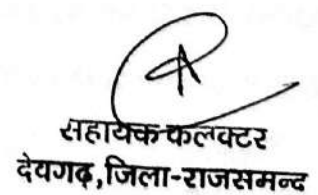 सहायक कलक्टर
देवगढ़,जिला-राजसमन्द